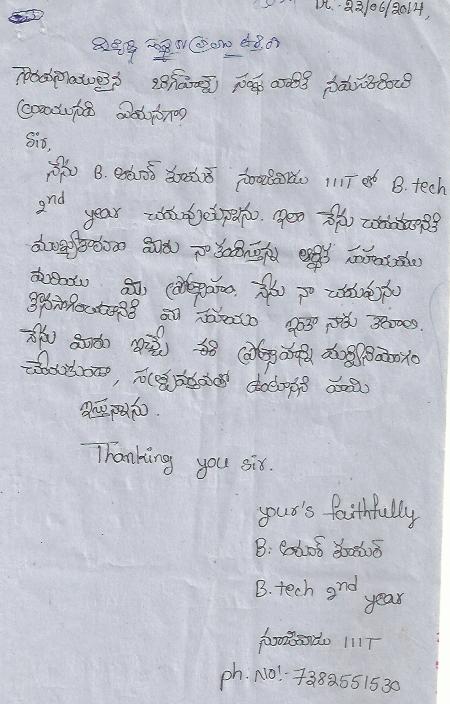 Dt:- 22/06/2014,
గౌరవనీయులైన సంస్థ వారికి నమస్కరించి
వ్రాయునది ఏమనగా
Sir,
నేను B. అరుణ్ కుమార్ నూజివీడు IIIT లో B.tech
2nd year చదువుతున్నాను. ఇలా నేను చదవడానికి
ముఖ్యకారణం మీరు నా కందిస్తున్న ఆర్థిక సహాయము
మరియు మీ ప్రోత్సాహం. నేను నా చదువును
కొనసాగించుటానికి మీ సహాయం ఇంకా నాకు కావాలి.
నేను మీరు ఇచ్చే ప్రోత్సాహాన్ని దుర్వినియోగం
చేయకుండా, సత్ప్రవర్తనతో ఉంటానని హామి
ఇస్తున్నాను.
Thanking you sir.
your's faithfully
B. అరుణ్ కుమార్
B.tech 2nd year
నూజివీడు IIIT
ph.No:- 7382551530